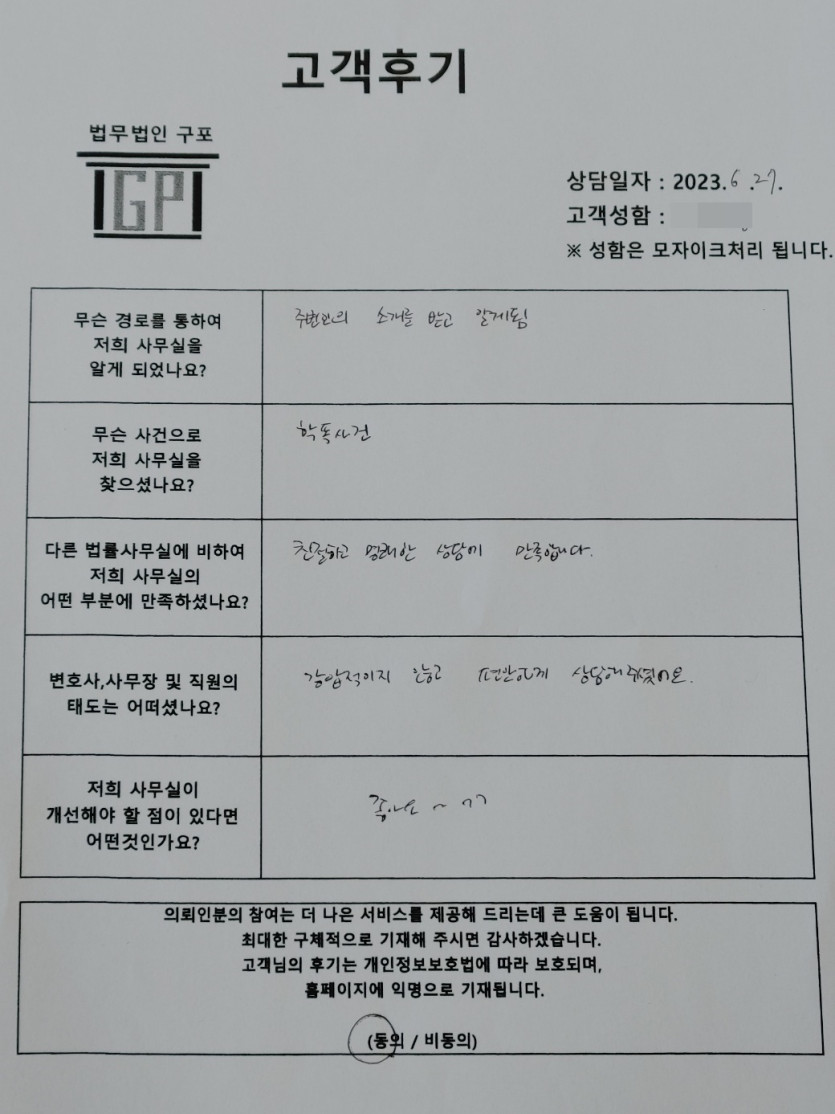 고객후기
법무법인 구포
IGPI
상담일자 : 2023.6.27.
고객성함 :
※ 성함은 모자이크처리 됩니다.
무슨 경로를 통하여
저희 사무실을
알게 되었나요?
주변인의 소개를 받고 알게됨
무슨 사건으로
저희 사무실을
찾으셨나요?
학폭사건
다른 법률사무실에 비하여
저희 사무실의
어떤 부분에 만족하셨나요?
친절하고 명쾌한 상담에 만족합니다.
변호사,사무장 및 직원의
태도는 어떠셨나요?
강압적이지 않고 편안하게 상담해주셨어요.
저희 사무실이
개선해야 할 점이 있다면
어떤것인가요?
좋아요 ~ ㄱㄱ
의뢰인분의 참여는 더 나은 서비스를 제공해 드리는데 큰 도움이 됩니다.
최대한 구체적으로 기재해 주시면 감사하겠습니다.
고객님의 후기는 개인정보보호법에 따라 보호되며,
홈페이지에 익명으로 기재됩니다.
(동의 / 비동의)